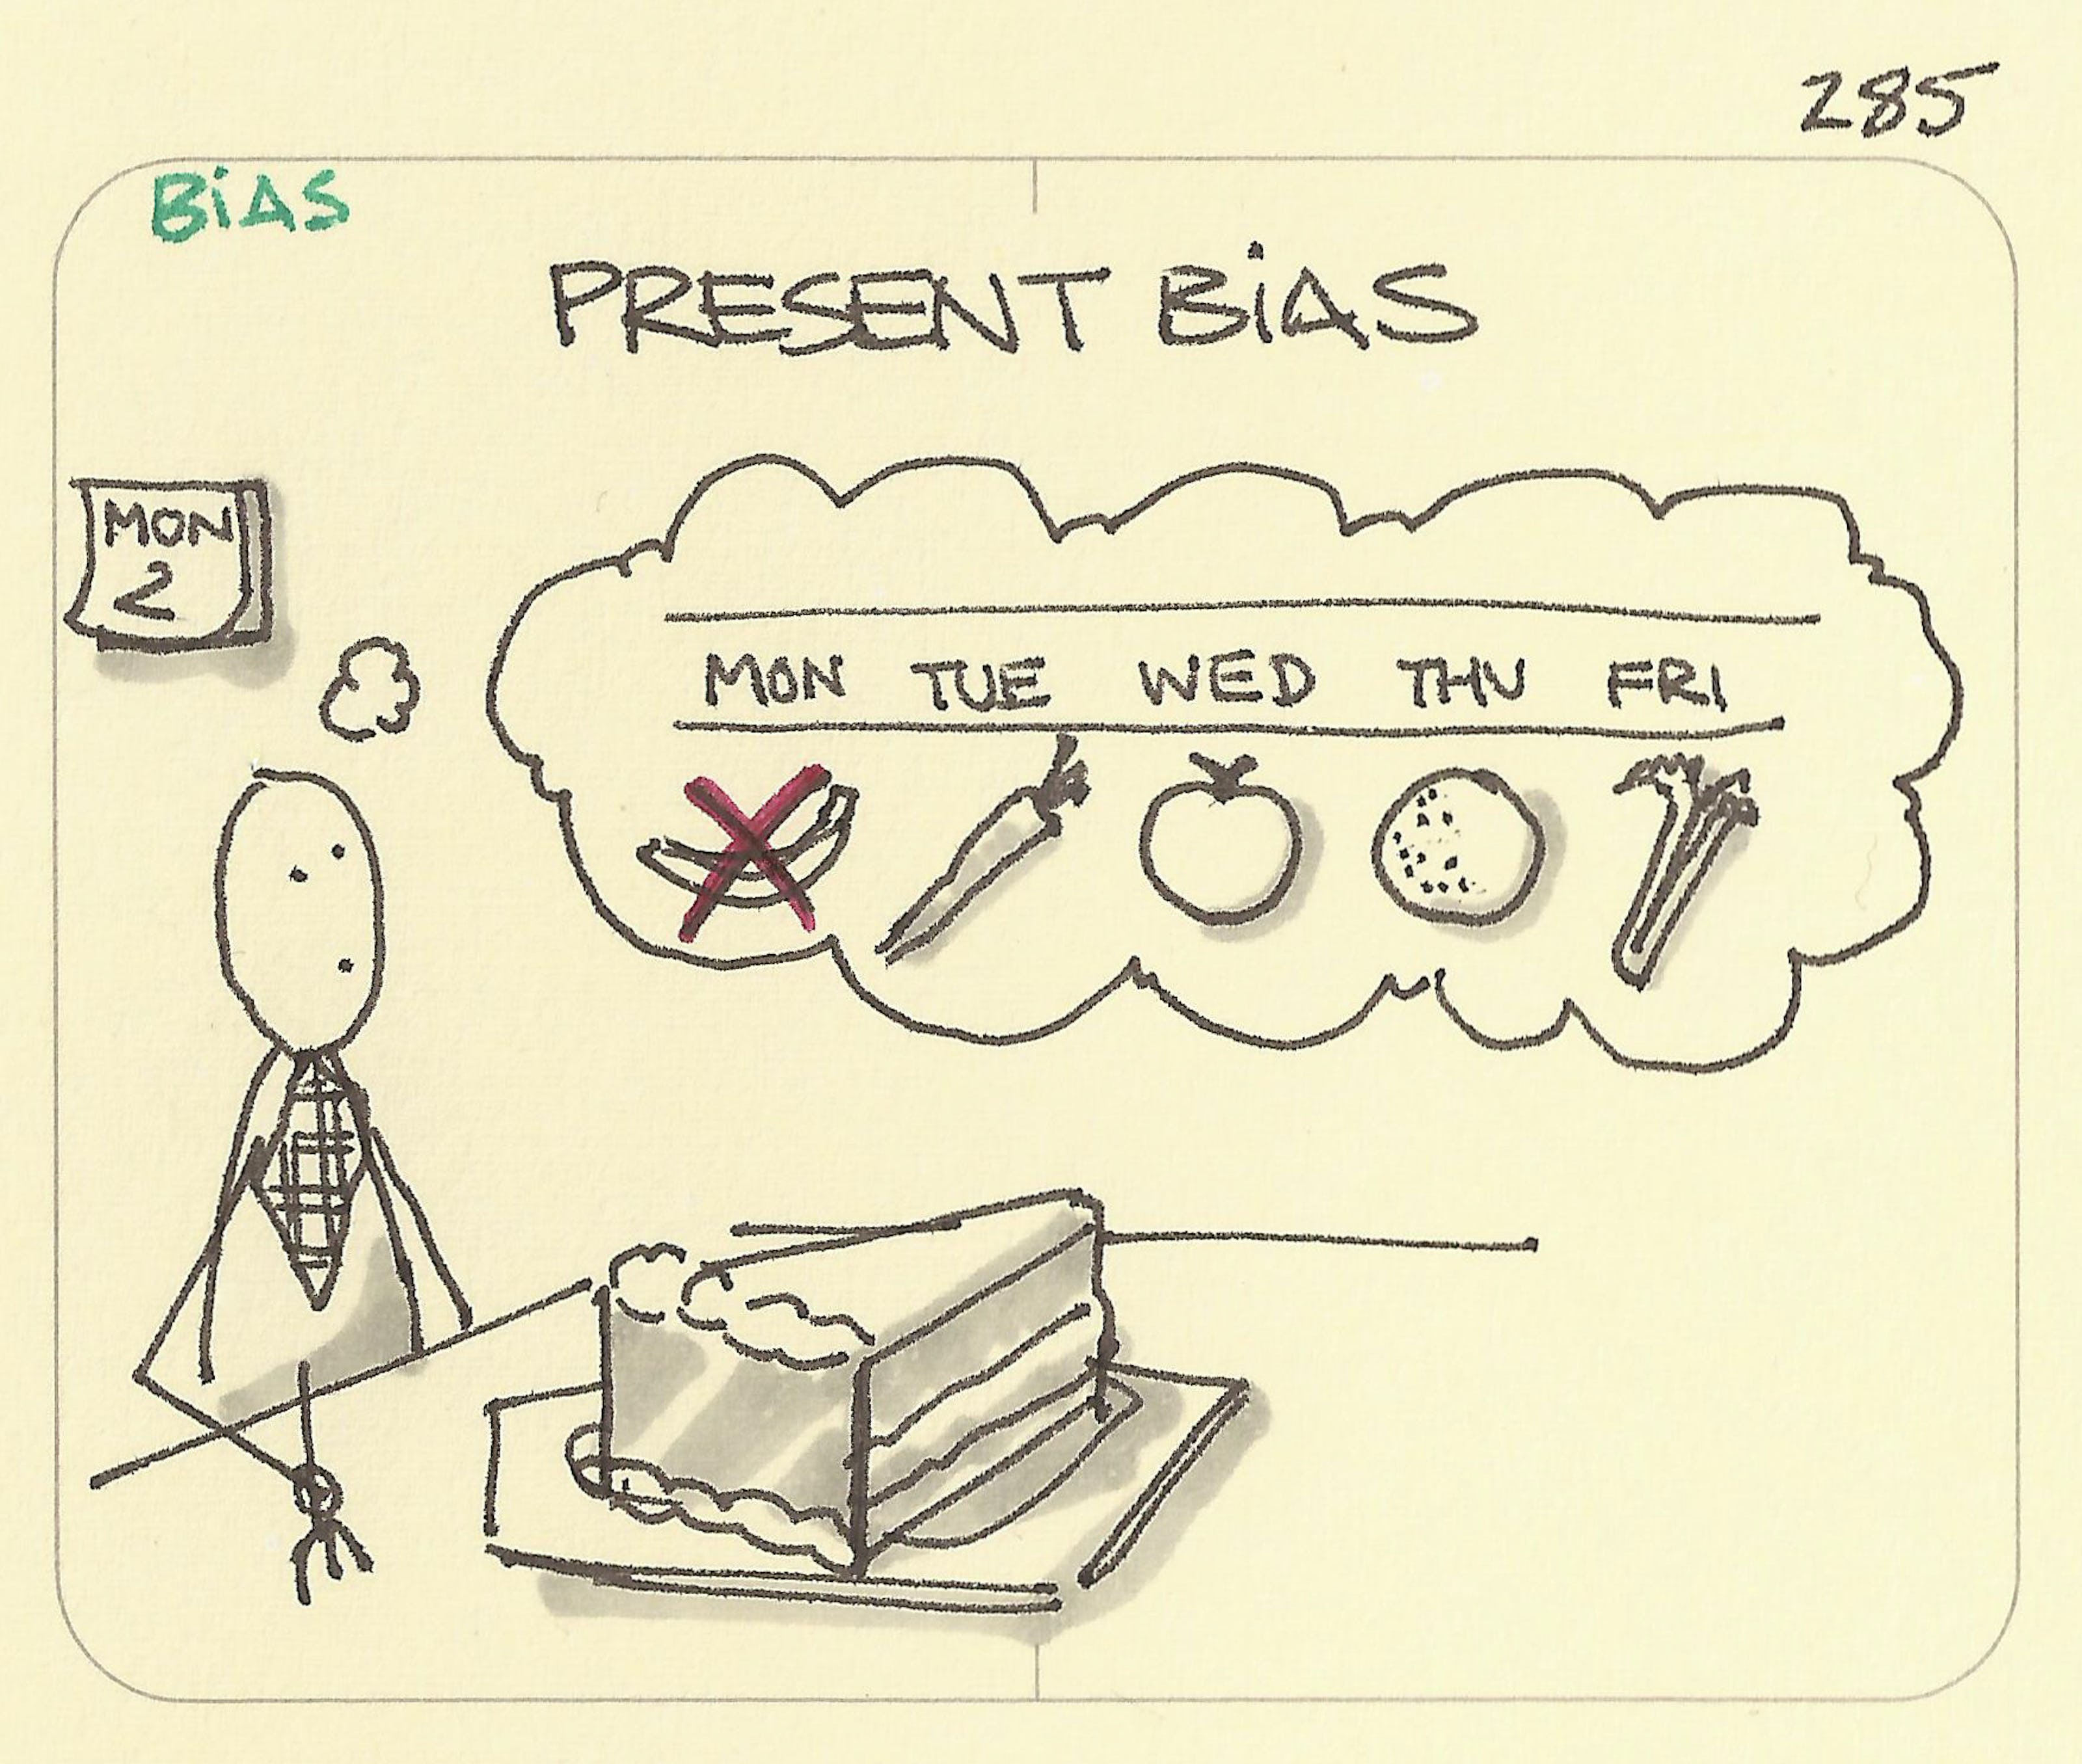 285
BiAS
PRESENT BiAS
MON
2
MON TUE WED THU FRI